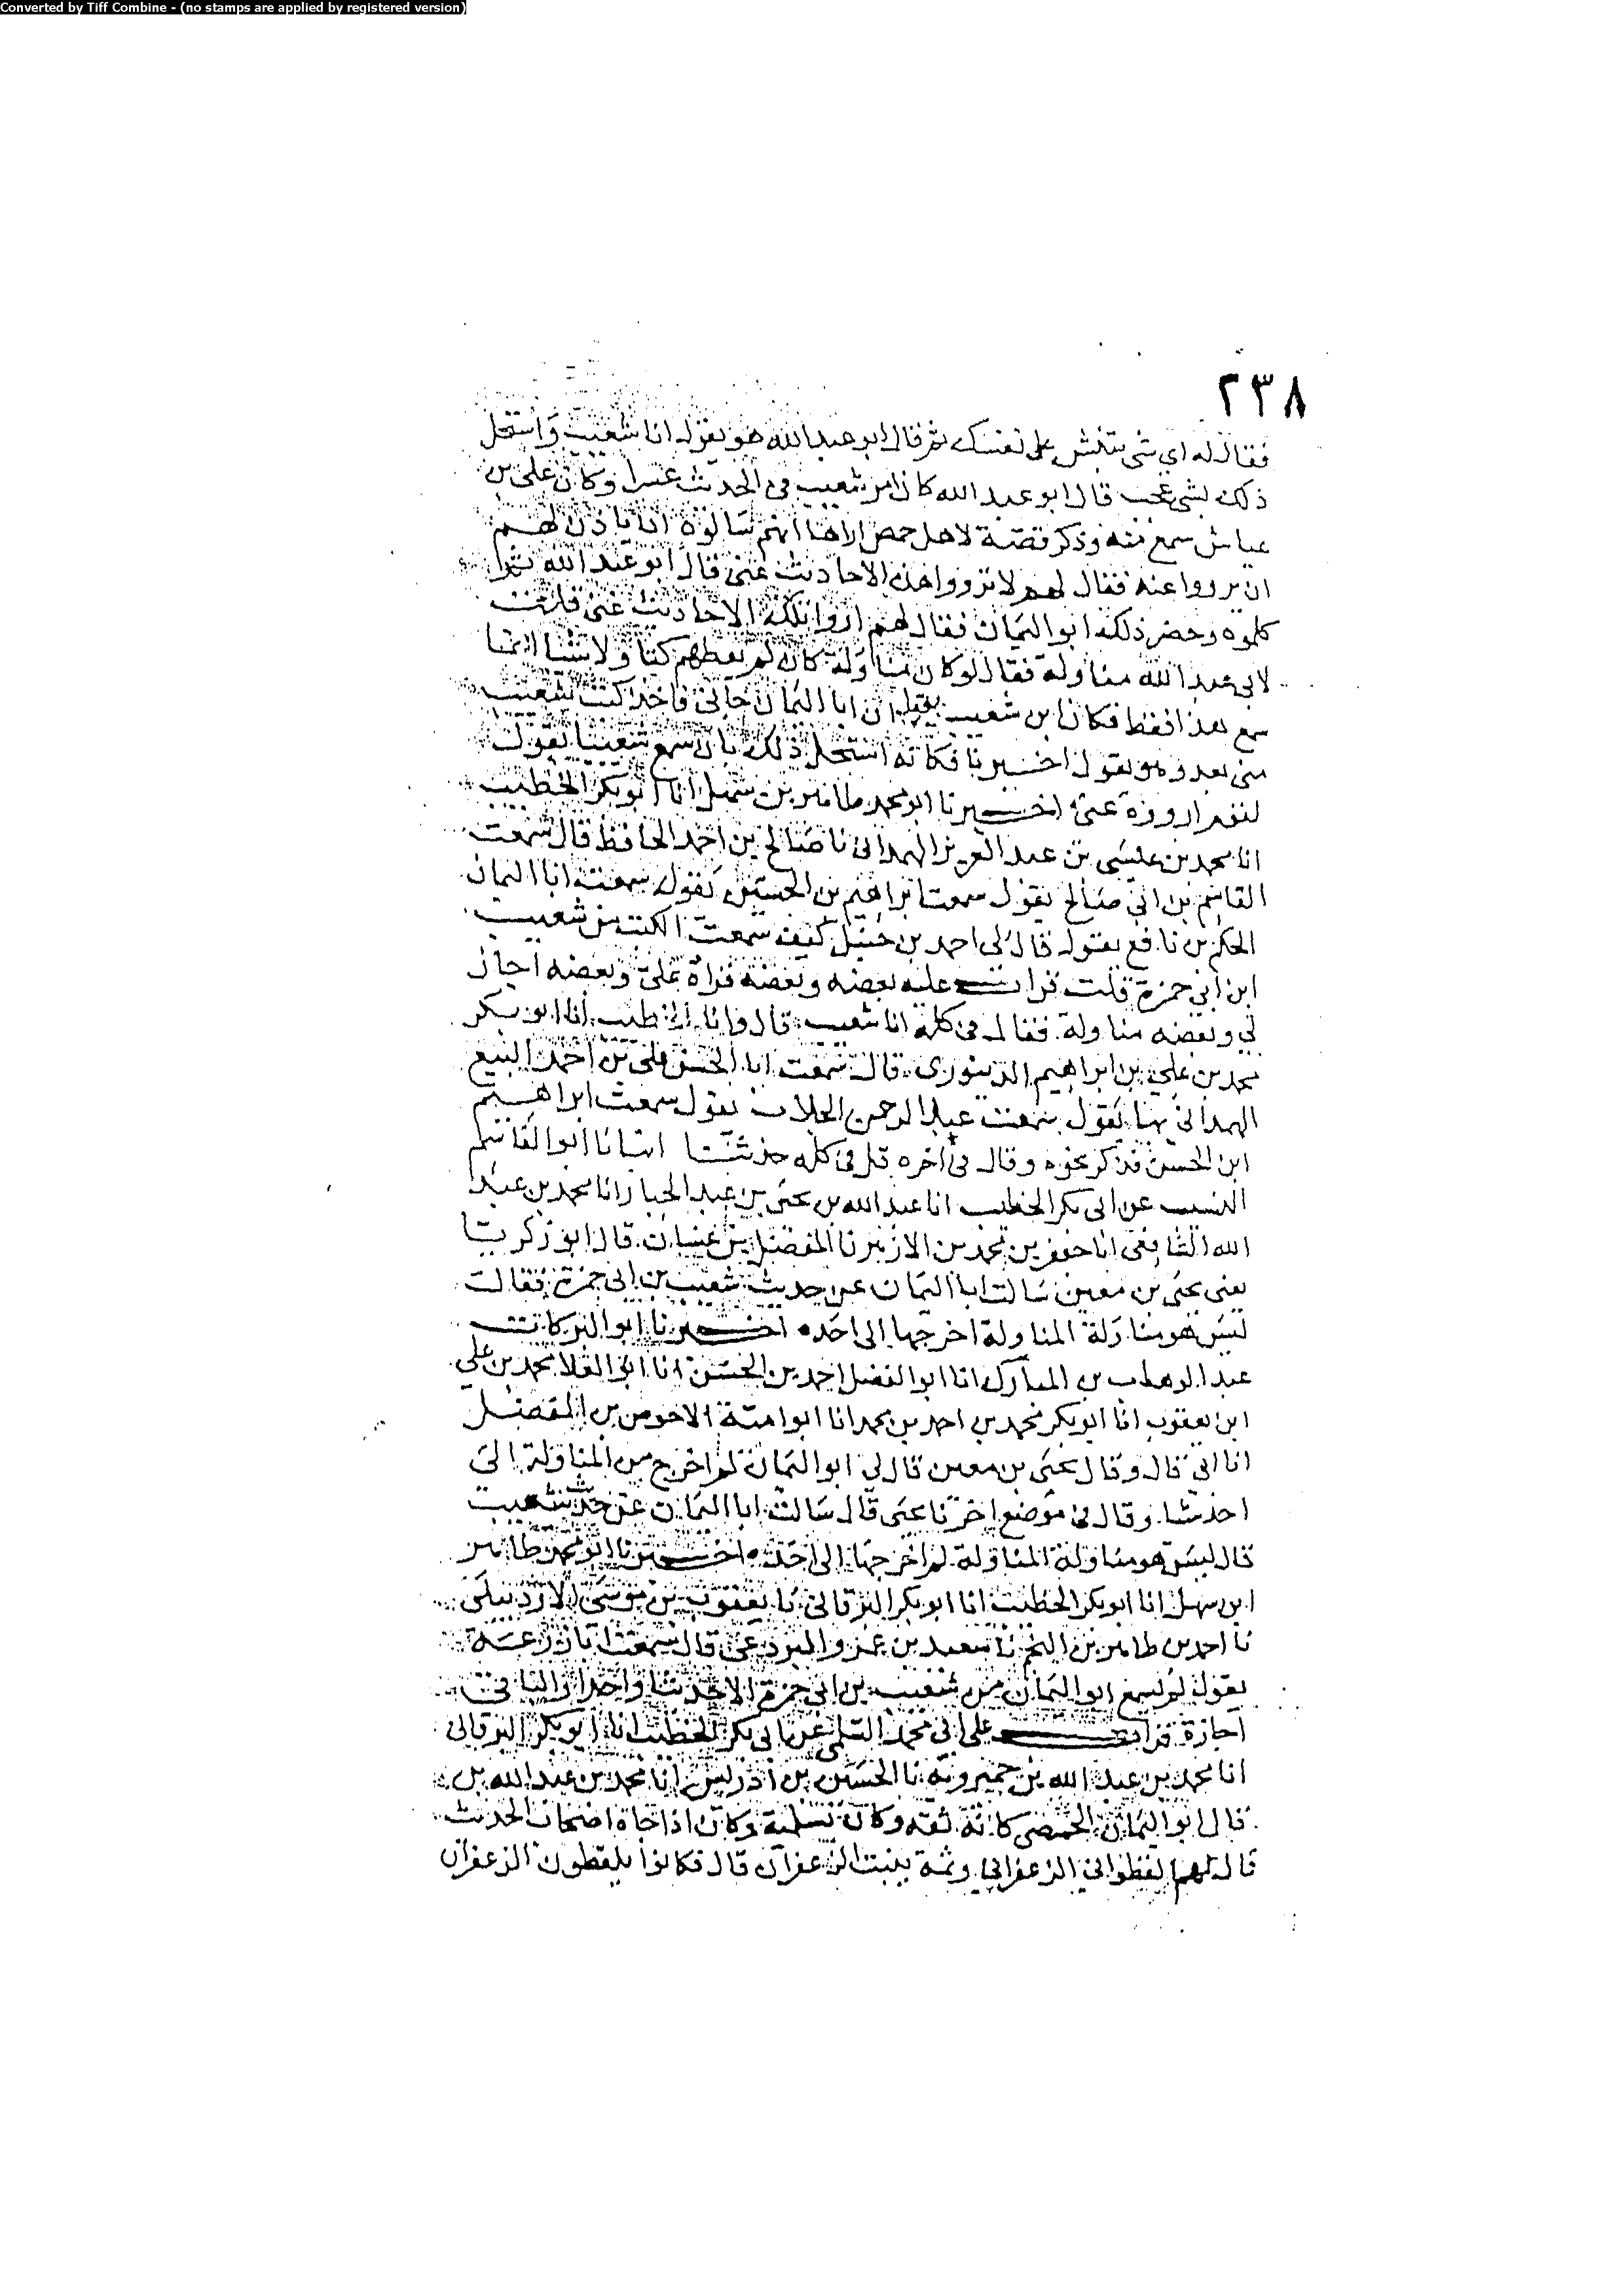 Converted by Tiff Combine - (no stamps are applied by registered version)
٢٣٨
فقال له اي شي تنبش على نفسك ثم قال ابو عبد الله هو يقول انا شعيب واستحل
ذلك بشي عجب قال ابو عبد الله كان امر شعيب في الحديث عسرا وكان علي بن
عياش سمع منه وذكر قصة لاهل حمص اراها انهم سالوه ان ياذن لهم
ان يرووا عنه فقال لهم لا ترووا هذه الاحاديث عني قال ابو عبد الله ثم
كلموه وحضر ذلك ابو اليمان فقال لهم ارووا تلك الاحاديث عني قلت
لابي عبد الله مناولة فقال لو كان مناولة كان لم يعطهم كتبا ولا شيئا انما
سمع هذا فقط فكان ابن شعيب يقول ان ابا اليمان جاني فاخذ كتب شعيب
مني بعد وهو يقول اخبرنا فكانه استحل ذلك بان سمع شعيبا يقول
لقوم ارووه عني اخبرنا ابو محمد طاهر بن سهل انا ابو بكر الخطيب
انا محمد بن عيسى بن عبد العزيز الهمداني نا صالح بن احمد الحافظ قال سمعت
القاسم بن ابي صالح يقول سمعت ابراهيم بن الحسين يقول سمعت ابا اليمان
الحكم بن نافع يقول قال لي احمد بن حنبل كيف سمعت الكتب من شعيب
ابن ابي حمزة قلت قرات عليه بعضه وبعضه قراه علي وبعضه اجاز
لي وبعضه مناولة فقال في كله انا شعيب قال وانا الخطيب انا ابو بكر
محمد بن علي بن ابراهيم الدينوري قال سمعت ابا الحسن علي بن احمد البيع
الهمداني بها يقول سمعت عبد الرحمن الجلاب يقول سمعت ابراهيم
ابن الحسين فذكر نحوه وقال في اخره قل في كله حدثنا انبانا ابو القاسم
النسيب عن ابي بكر الخطيب انا عبد الله بن يحيى بن عبد الجبار انا محمد بن عبد
الله الشافعي انا جعفر بن محمد بن الازهر نا المفضل بن غسان قال ابو زكريا
يعني يحيى بن معين سالت ابا اليمان عن حديث شعيب بن ابي حمزة فقال
ليس هو مناولة المناولة اخرجها الى احد اخبرنا ابو البركات
عبد الوهاب بن المبارك انا ابو الفضل احمد بن الحسن انا ابو العلا محمد بن علي
ابن يعقوب انا ابو بكر محمد بن احمد بن محمد انا ابو امية الاحوص بن المفضل
انا ابي قال وقال يحيى بن معين قال لي ابو اليمان لم اخرج من المناولة الى
احد شيا وقال في موضع اخر نا يحيى قال سالت ابا اليمان عن حديث شعيب
قال ليس هو مناولة المناولة لم اخرجها الى احد اخبرنا ابو محمد طاهر
ابن سهل انا ابو بكر الخطيب انا ابو بكر البرقاني نا يعقوب بن موسى الاردبيلي
نا احمد بن طاهر بن النجم نا سعيد بن عمرو البردعي قال سمعت ابا زرعة
يقول لم يسمع ابو اليمان من شعيب بن ابي حمزة الا حديثا واحدا والباقي
اجازة قرات على ابي محمد السلمي عن ابي بكر الخطيب انا ابو بكر البرقاني
انا محمد بن عبد الله بن خميرويه نا الحسين بن ادريس انا محمد بن عبد الله بن
قال ابو اليمان الحمصي كانه ثقه وكان بسلمية وكان اذا جاه اصحاب الحديث
قال لهم القطوا لي الزعفران وثمة ينبت الزعفران قال فكانوا يلقطون الزعفران